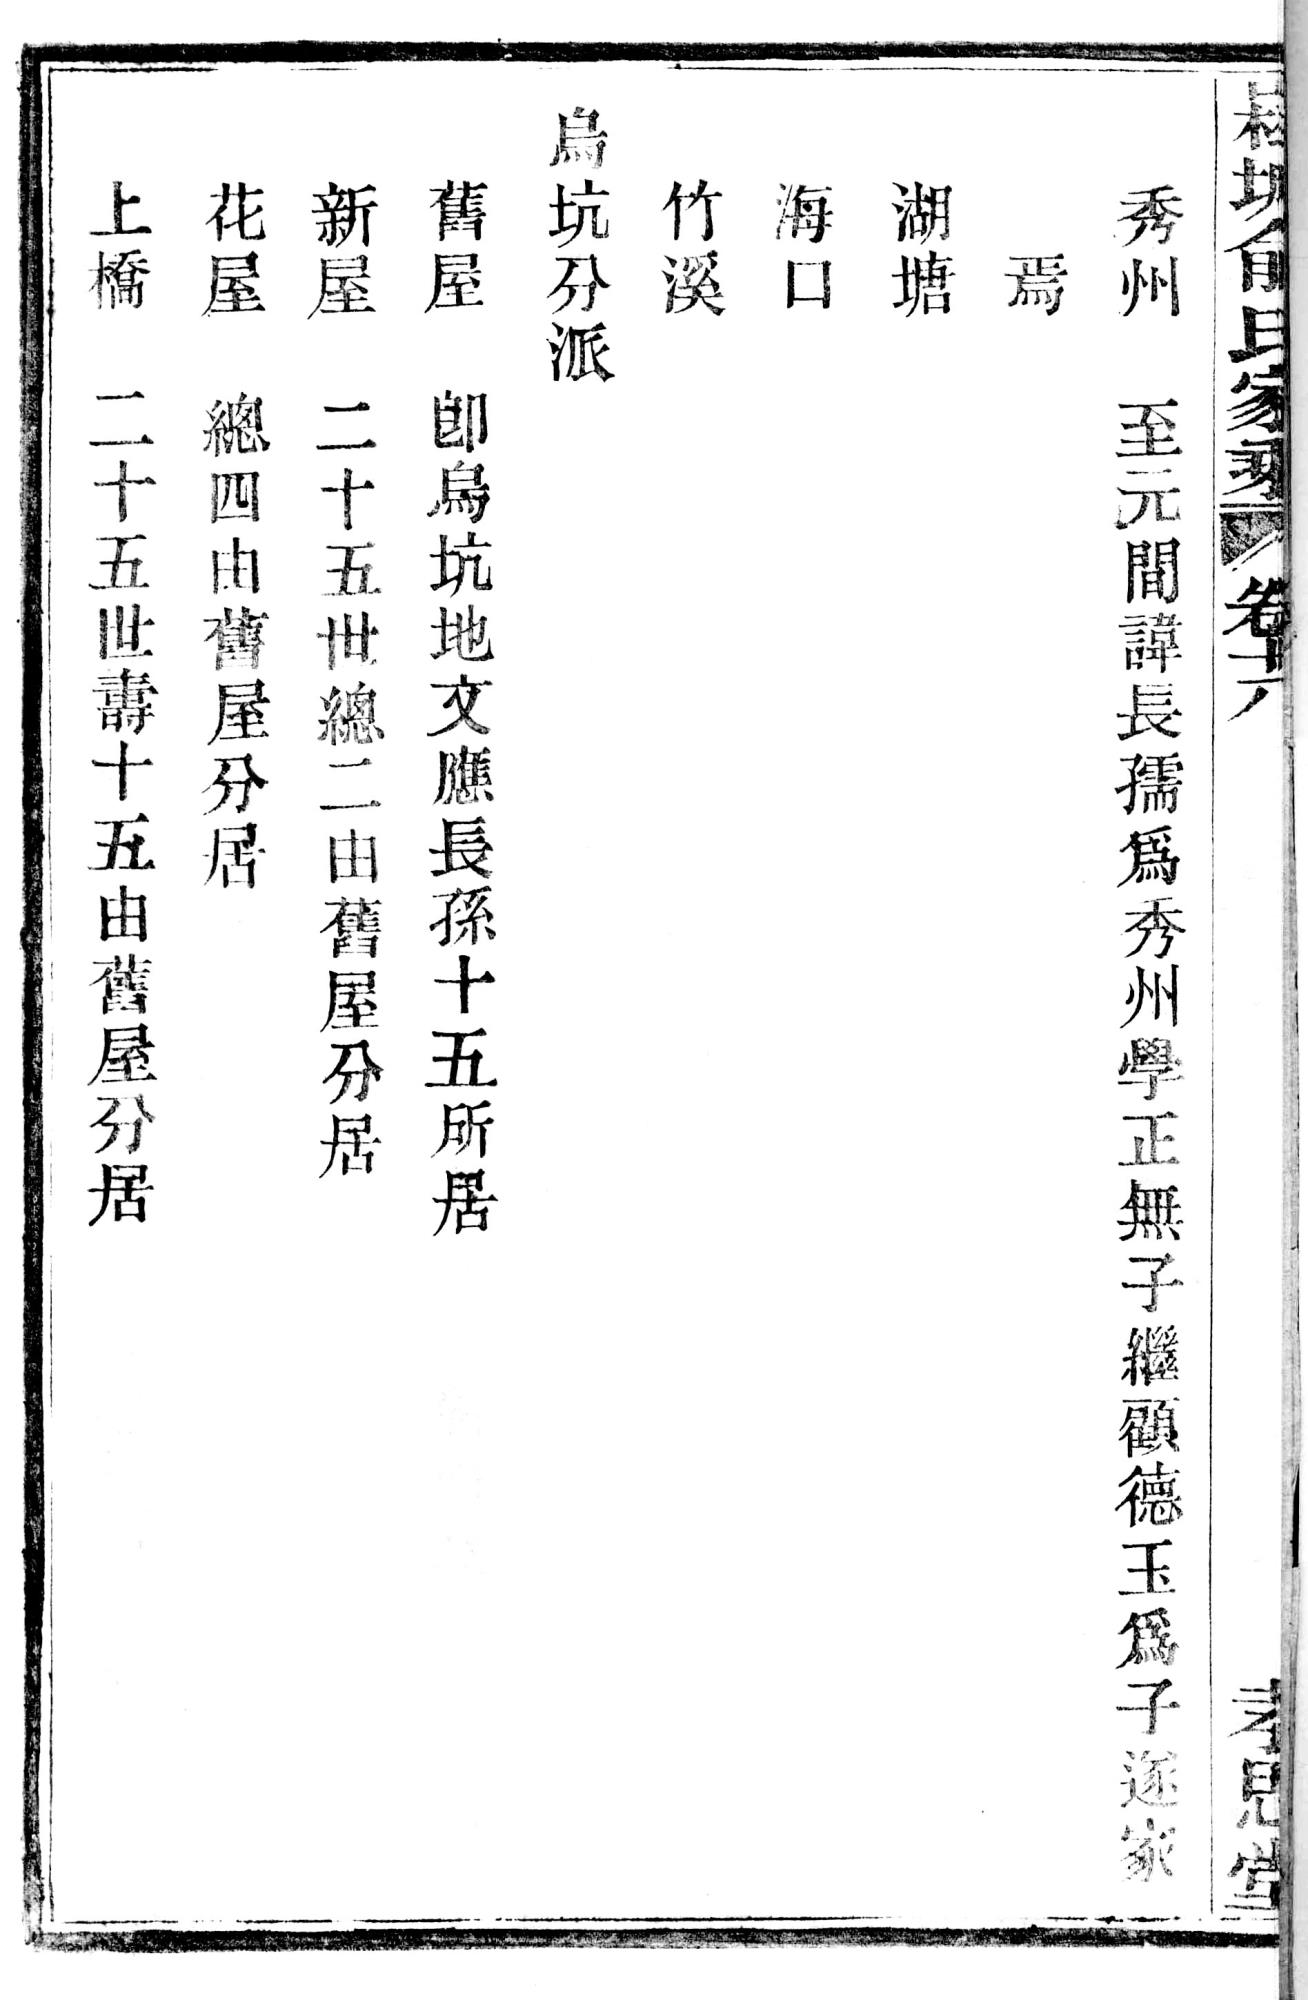 俞氏家乘 卷十六 孝思堂
秀州 至元間諱長孺爲秀州學正無子繼顧德玉爲子遂家
焉
湖塘
海口
竹溪
烏坑分派
舊屋 卽烏坑地文應長孫十五所居
新屋 二十五世總二由舊屋分居
花屋 總四由舊屋分居
上橋 二十五世壽十五由舊屋分居